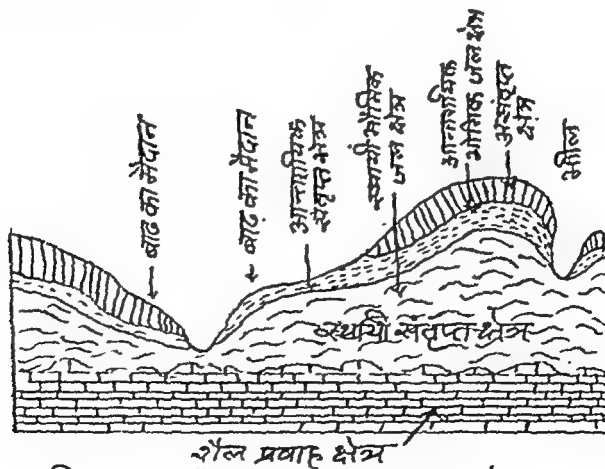 बाढ़ का मैदान
बाढ़ का मैदान
आन्तरायिक
संतृप्त क्षेत्र
स्थायी भौमिक
जल क्षेत्र
आन्तरायिक
भौमिक जल क्षेत्र
असंतृप्त
क्षेत्र
झील
स्थायी संतृप्त क्षेत्र
शैल प्रवाह क्षेत्र